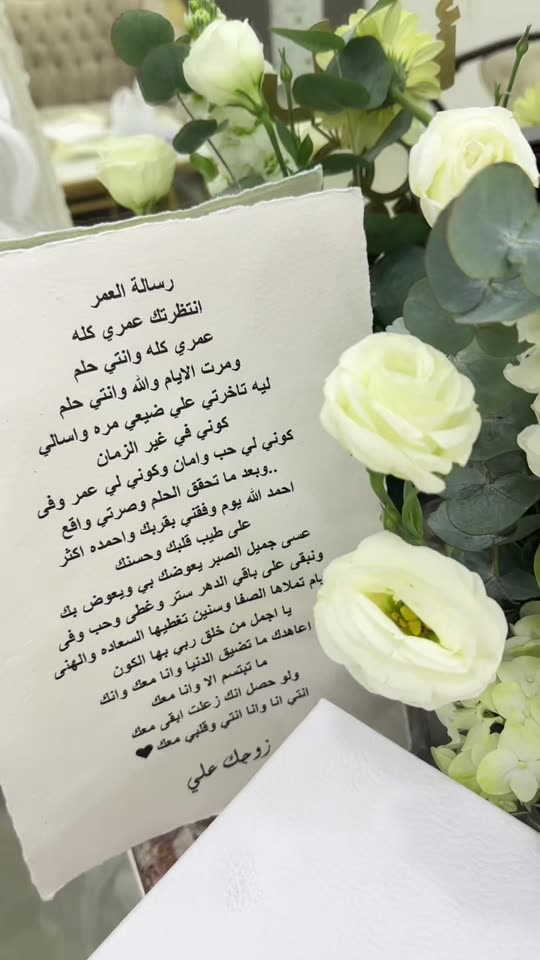 رسالة العمر
انتظرتك عمري كله
عمري كله وانتي حلم
ومرت الايام والله وانتي حلم
ليه تاخرتي علي ضيعي مره واسالي
كوني في غير الزمان
كوني لي حب وامان وكوني لي عمر وفى
..وبعد ما تحقق الحلم وصرتي واقع
احمد الله يوم وفقتي بقربك واحمده اكثر
على طيب قلبك وحسنك
عسى جميل الصبر يعوضك بي ويعوض بك
ونبقى على باقي الدهر ستر وغطى وحب وفى
يام تملاها الصفا وسنين تغطيها السعاده والهنى
يا اجمل من خلق ربي بها الكون
اعاهدك ما تضيق الدنيا وانا معك وانك
ما تبتسم الا وانا معك
ولو حصل انك زعلت ابقى معك
انتي انا وانا انتي وقلبي معك🖤
زوجك علي